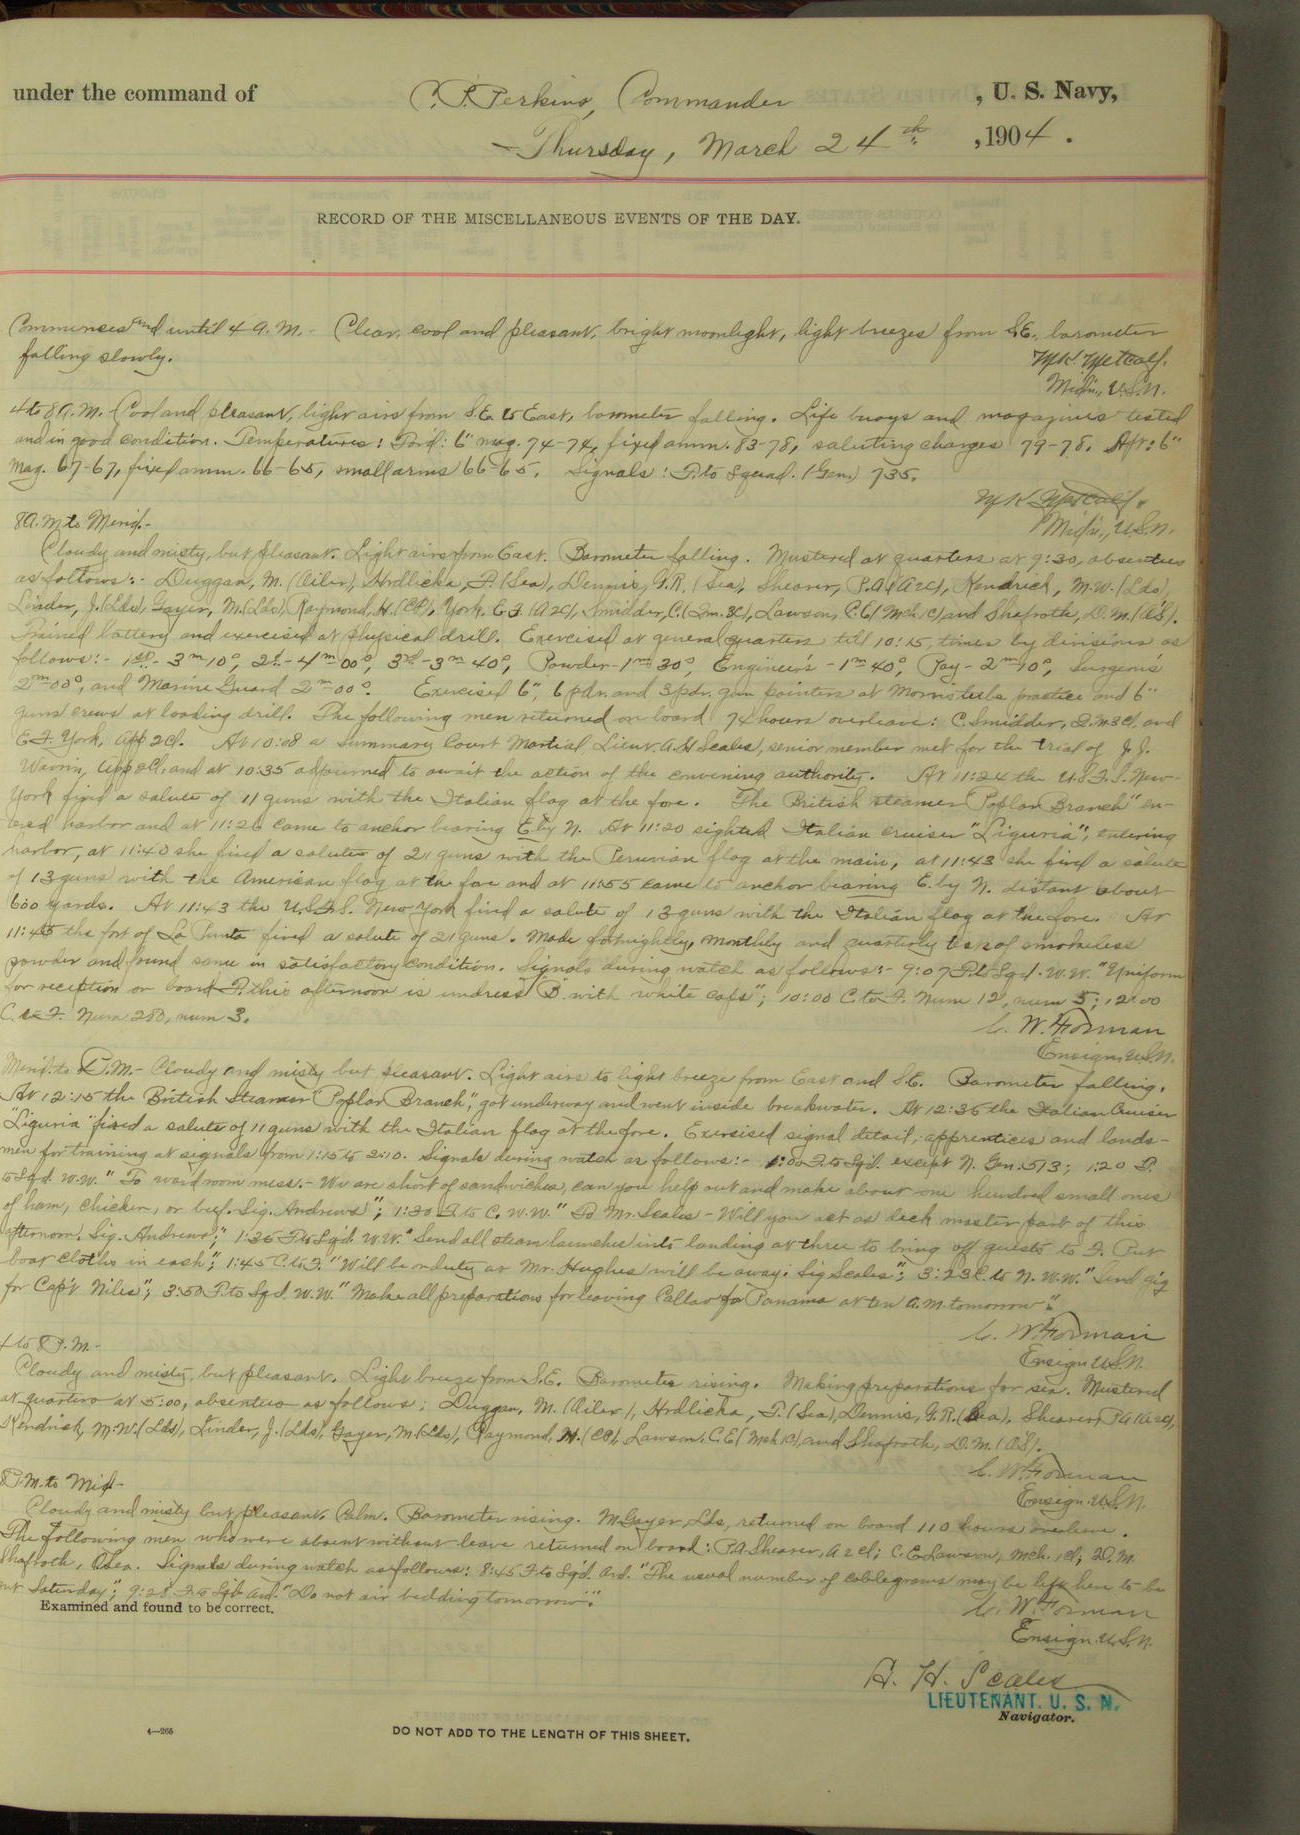 under the command of C. P. Perkins, Commander, U. S. Navy,
Thursday, March 24th, 1904.
RECORD OF THE MISCELLANEOUS EVENTS OF THE DAY.
Commences and until 4 A.M.- Clear, cool and pleasant, bright moonlight, light breezes from S.E., barometer
falling slowly.
M.K. Metcalf.
Mid'n., U.S.N.
4 to 8 A.M.- Cool and pleasant, light airs from S.E. to East, barometer falling. Life buoys and magazines tested
and in good condition. Temperatures: For'd: 6" mag. 74-74, fixed amm. 83-78, saluting charges 79-78. Aft: 6"
mag. 67-67, fixed amm. 66-65, small arms 66-65. Signals: F. to Squad. (Gen.) 735.
M K Metcalf.
Mid'n., U.S.N.
8 A.M. to Merid.-
Cloudy and misty, but pleasant. Light airs from East. Barometer falling. Mustered at quarters at 9:30, absentees
as follows:- Duggan, M. (Oiler), Hrdlicka, F. (Sea), Dennis, G.R. (Sea), Shearer, P.A. (A2Cl), Kendrick, M.W. (Lds),
Linder, J. (Lds), Gayer, M. (Lds), Raymond, H. (CP), York, E.F. (A2Cl), Smidder, C. (Q.m.3C), Lawson, C.E. (Mch.1C) and Shafroth, D.M. (OS).
Trained battery and exercised at physical drill. Exercised at general quarters till 10:15, times by divisions as
follows:- 1st- 3m 10s, 2d- 4m 00s, 3rd- 3m 40s, Powder- 1m 30s, Engineer's- 1m 40s, Pay- 2m 10s, Surgeon's
2m 00s, and Marine Guard 2m 00s. Exercised 6", 6 pdr. and 3 pdr. gun pointers at Morris tube practice and 6"
guns crews at loading drill. The following men returned on board 74 hours overleave: C. Smidder, Q.M3Cl, and
E.F. York, App 2Cl. At 10:08 a Summary Court Martial, Lieut. A.H Scales, senior member met for the trial of J.J.
and at 10:35 adjourned to await the action of the convening authority. At 11:24 the U.S.F.S. New-
York fired a salute of 11 guns with the Italian flag at the fore. The British steamer "Poplar Branch" en-
tered harbor and at 11:26 came to anchor bearing E by N. At 11:20 sighted Italian cruiser "Liguria", entering
harbor, at 11:40 she fired a salute of 21 guns with the Peruvian flag at the main, at 11:43 she fired a salute
of 13 guns with the American flag at the fore and at 11:55 came to anchor bearing E. by N. distant about
600 yards. At 11:43 the U.S.F.S. New York fired a salute of 13 guns with the Italian flag at the fore. At
11:45 the fort of La Punta fired a salute of 21 guns. Made fortnightly, monthly and quarterly tests of smokeless
powder and found same in satisfactory condition. Signals during watch as follows:- 9:07 F. to Sqd. W.W. "Uniform
for reception on board F. this afternoon is undress "B" with white caps"; 10:00 C. to F. Num 12, num 5; 12:00
C. to F. Num 280, num 3.
C. W. Forman
Ensign, U.S.N.
Merid. to 4 P.M.- Cloudy and misty but pleasant. Light airs to light breeze from East and S.E. Barometer falling.
At 12:15 the British Steamer "Poplar Branch", got underway and went inside breakwater. At 12:35 the Italian Cruiser
"Liguria" fired a salute of 11 guns with the Italian flag at the fore. Exersised signal detail, apprentices and lands-
men for training at signals from 1:15 to 2:10. Signals during watch as follows:- 1:00 F. to Sq'd. except N. Gen. 513; 1:20 F.
to Sqd. W.W. "To wardroom mess.- We are short of sandwiches, can you help out and make about one hundred small ones
of ham, chicken, or beef. Sig. Andrews"; 1:30 F. to C. W.W. "To Mr. Scales- Will you act as deck master part of this
afternoon. Sig. Andrews"; 1:35 F. to Sq'd. W.W. "Send all steam launches into landing at three to bring off guests to F. Put
boat cloths in each"; 1:45 C. to F. "Will be on duty as Mr. Hughes will be away. Sig Scales"; 3:23 C. to N. W.W. "Send gig
for Cap't Niles"; 3:50 F. to Sqd. W.W. "Make all preparations for leaving Callao for Panama at ten A.M. tomorrow".
C. W. Forman
Ensign U.S.N.
4 to 8 P.M.-
Cloudy and misty, but pleasant. Light breeze from S.E. Barometer rising. Making preparations for sea. Mustered
at quarters at 5:00, absentees as follows: Duggan, M. (Oiler), Hrdlicka, F. (Sea), Dennis, G.R. (Sea), Shearer, P.A. (A2Cl),
Kendrick, M.W. (Lds), Linder, J. (Lds), Gayer, M. (Lds), Raymond, H. (CP), Lawson, C.E. (Mch.1C), and Shafroth, D.M. (OS).
C. W. Forman
Ensign. U.S.N.
8 P.M. to Mid-
Cloudy and misty but pleasant. Calm. Barometer rising. M Gayer, Lds, returned on board 110 hours overleave.
The following men who were absent without leave returned on board: P.A. Shearer, A2Cl; C.E. Lawson, Mch. 1Cl; D.M.
Shafroth, OSea. Signals during watch as follows: 8:45 F. to Sq'd. Ard. "The usual number of cablegrams may be left here to be
sent Saturday"; 9:28 F. to Sqd. Ard. "Do not air bedding tomorrow".
C. W. Forman
Ensign. U.S.N.
Examined and found to be correct.
A. H. Scales
LIEUTENANT. U. S. N.
Navigator.
4—265
DO NOT ADD TO THE LENGTH OF THIS SHEET.